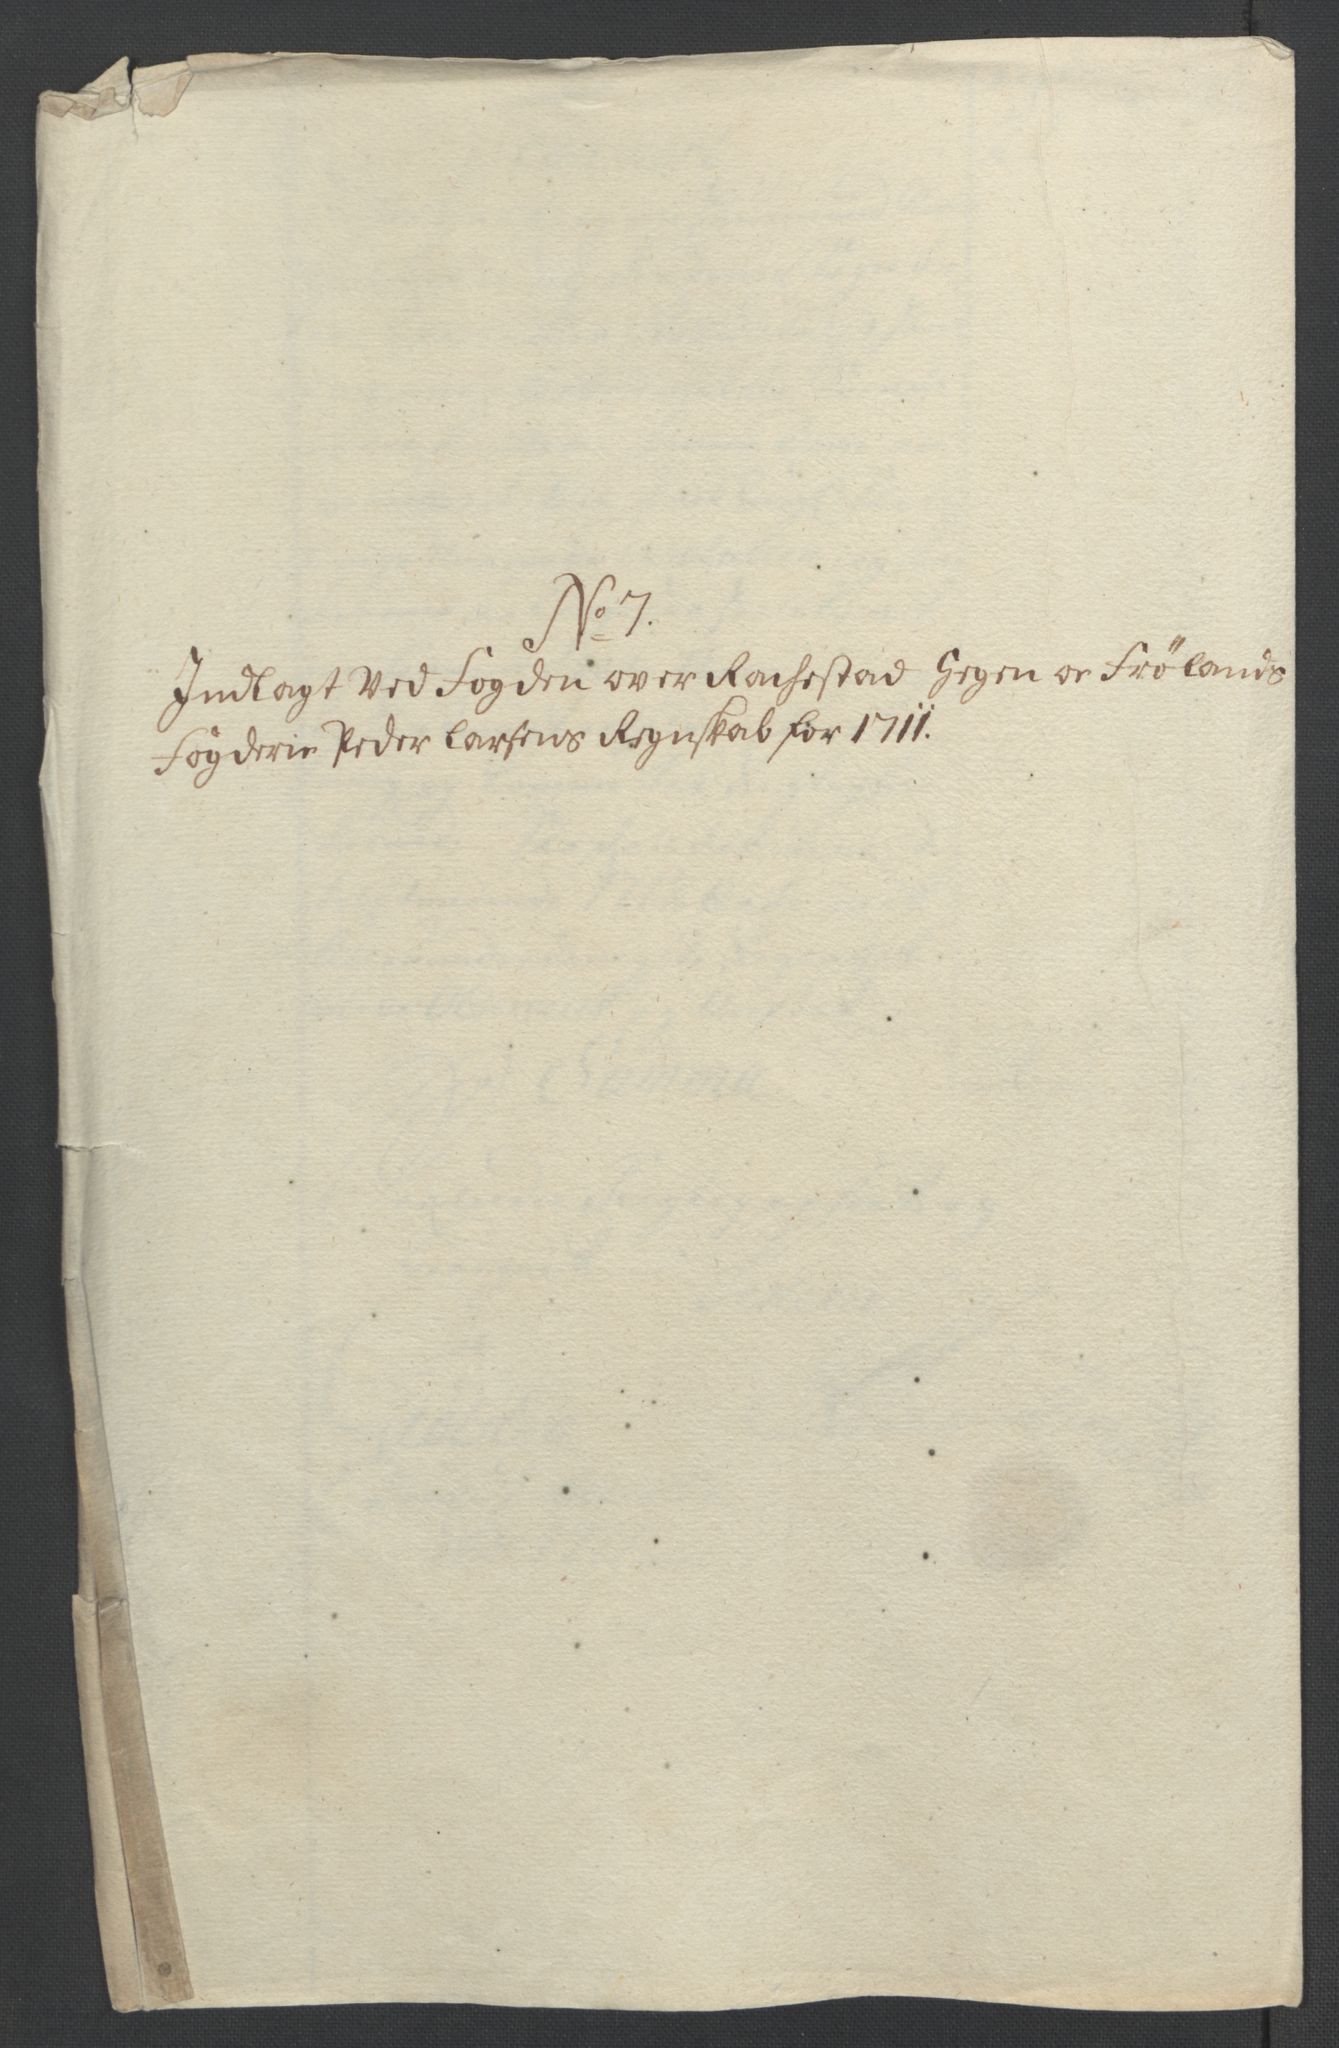 No 7.
Indlagt Ved Fogden over Rachestad Hegen oc Frölands
Fögderie Peder Larsens Regnskab for 1711.